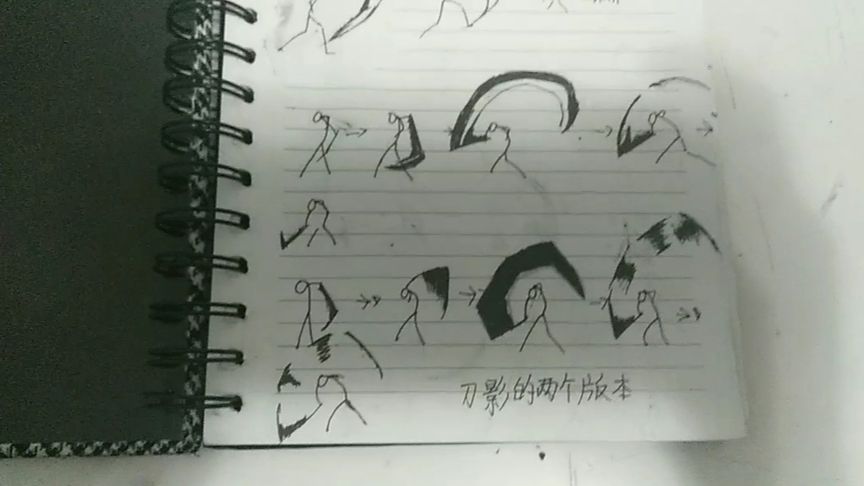 刀影的两个版本